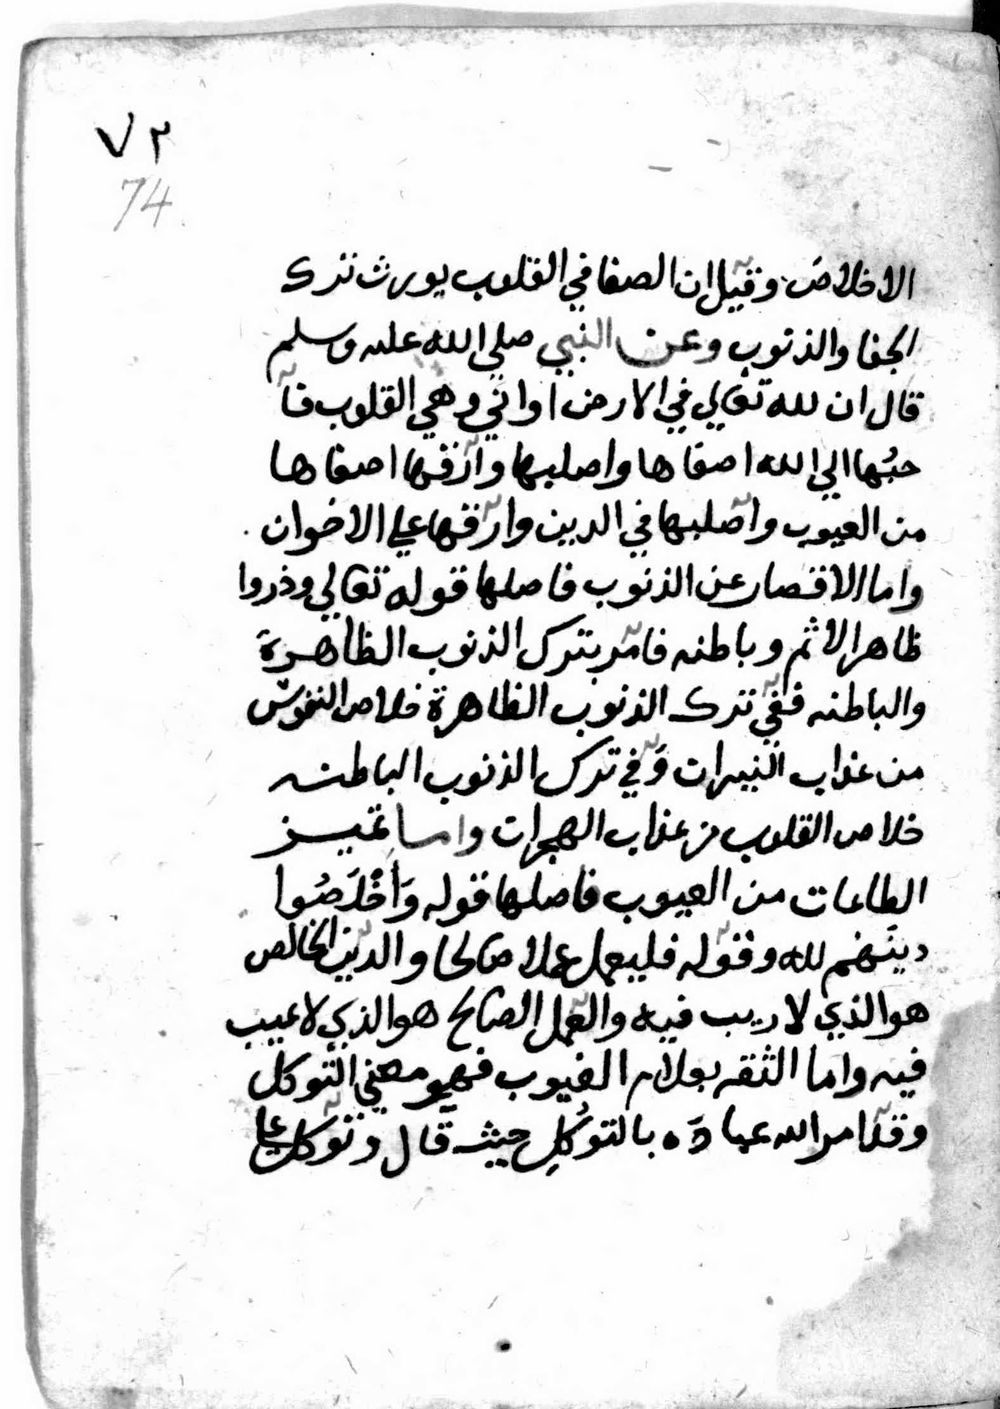 ٧٣
74
الاخلاص وقيل ان الصفا في القلوب يورث ترك
الجفا والذنوب وعن النبي صلي الله عليه وسلم
قال ان لله تعالي في الارض اواني وهي القلوب فا
حبُها الي الله اصفاها واصلبها وارقها اصفاها
من العيوب واصلبها في الدين وارقها علي الاخوان
واما الاقصار عن الذنوب فاصلها قوله تعالي وذروا
ظاهر الاثم وباطنه فامر بترك الذنوب الظاهرة
والباطنه ففي ترك الذنوب الظاهرة خلاص النفوس
من عذاب النيران وفي ترك الذنوب الباطنه
خلاص القلوب من عذاب الهجران واما تمييز
الطاعات من العيوب فاصلها قوله وَأخْلَصُوا
دينَهم لله وقوله فليعمل عملا صالحا والدين الخالص
هو الذي لا ريب فيه والعمل الصالح هو الذي لا عيب
فيه واما الثقه بعلام الغيوب فهو معني التوكل
وقد امر الله عبادَه بالتوكُلِ حيث قال وتوكل علي